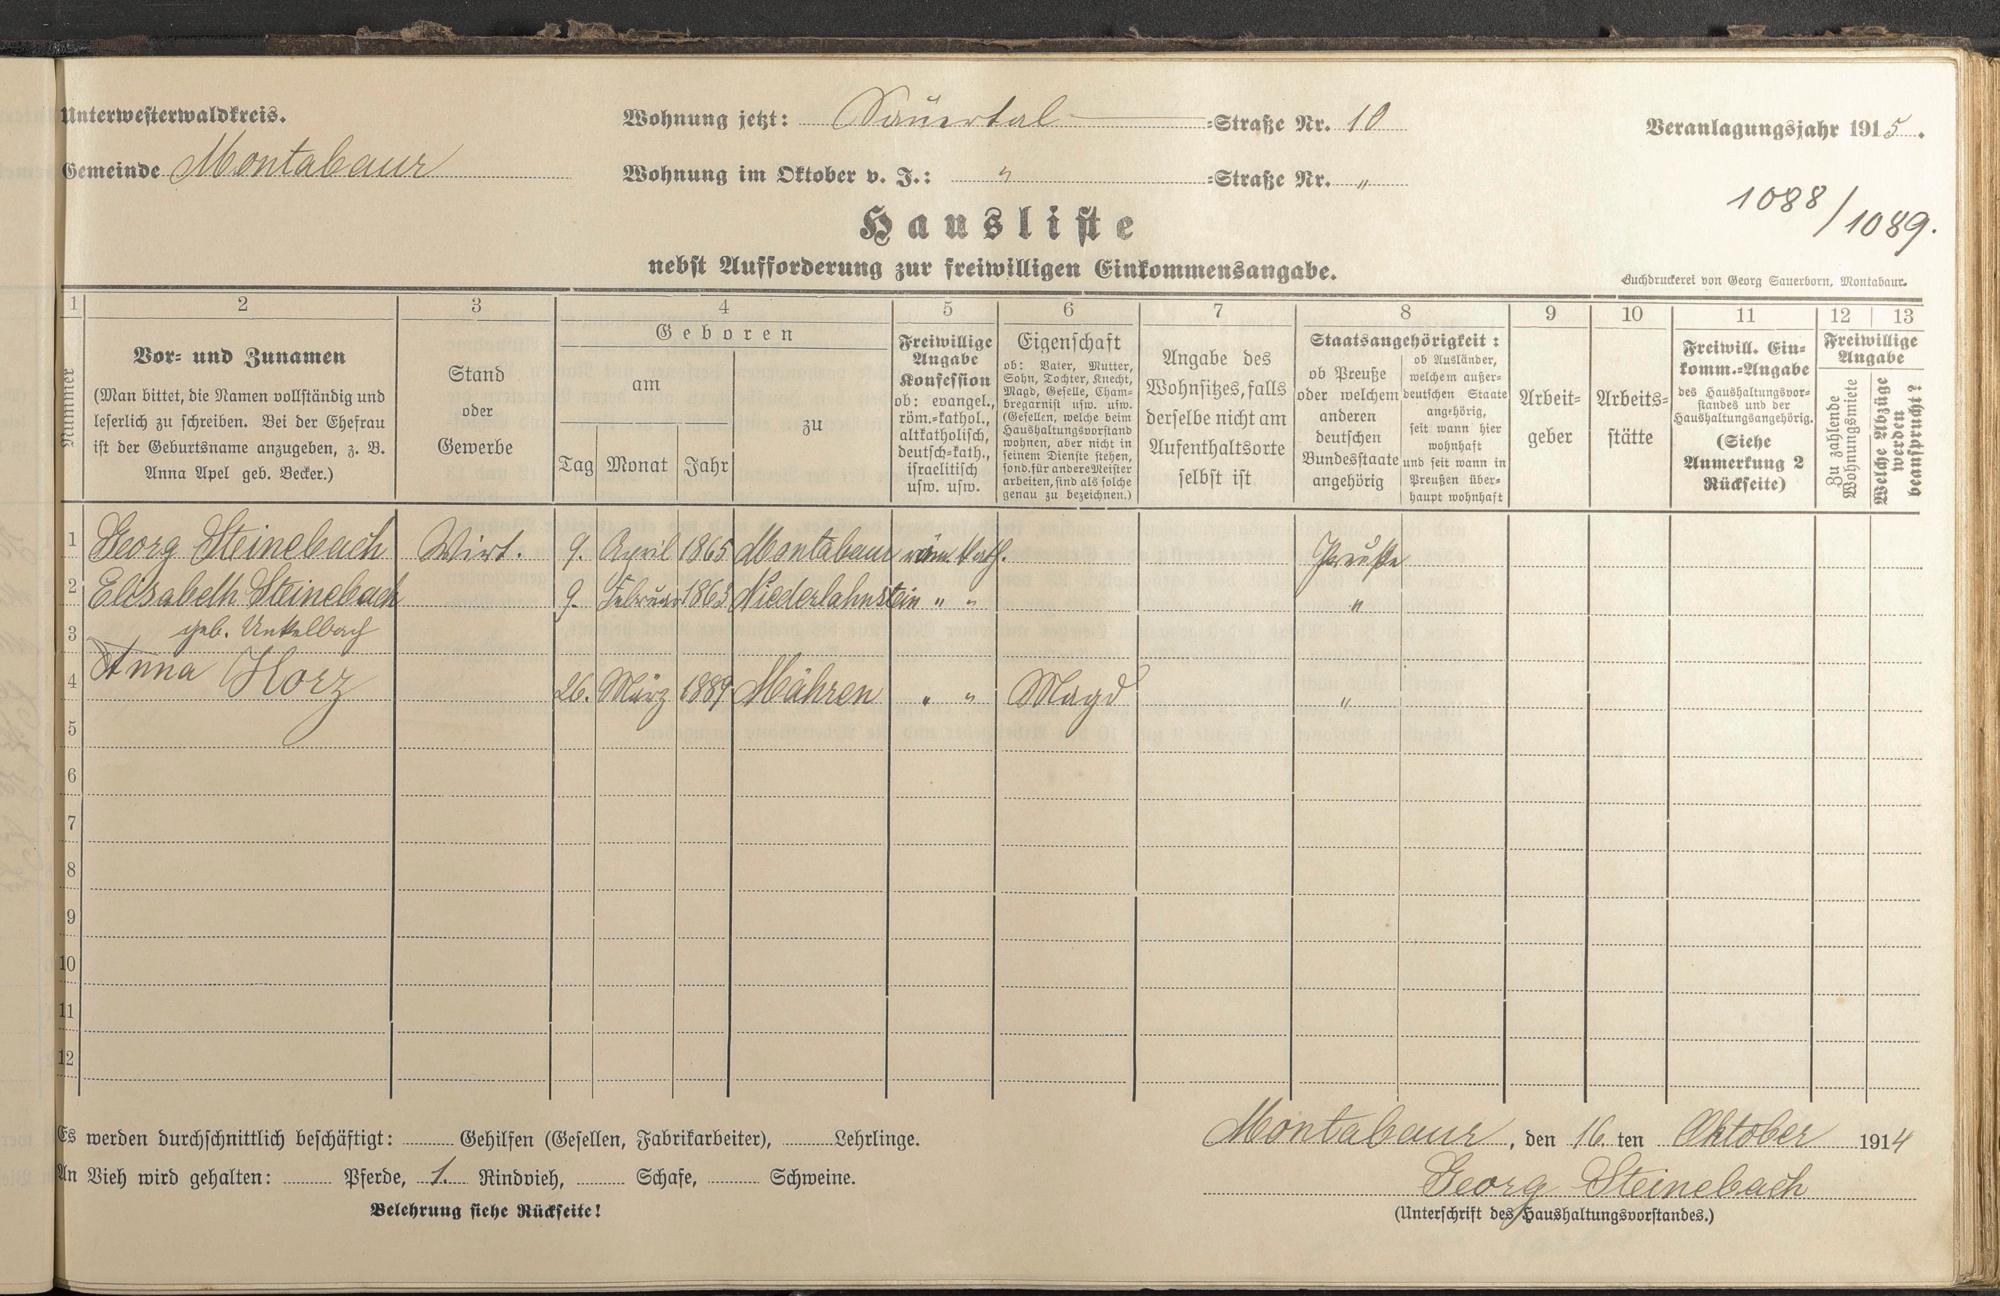 Unterwesterwaldkreis.
Gemeinde Montabaur
Wohnung jetzt: Sauertal =Straße Nr. 10
Wohnung im Oktober v. J.: " =Straße Nr. "
Veranlagungsjahr 1915.
1088/1089.
Hausliste
nebst Aufforderung zur freiwilligen Einkommensangabe.
Buchdruckerei von Georg Sauerborn, Montabaur.
1 2 3 4 5 6 7 8 9 10 11 12 13
Nummer
Vor- und Zunamen
(Man bittet, die Namen vollständig und
leserlich zu schreiben. Bei der Ehefrau
ist der Geburtsname anzugeben, z. B.
Anna Apel geb. Becker.)
Stand
oder
Gewerbe
Geboren
am
zu
Tag Monat Jahr
Freiwillige
Angabe
Konfession
ob: evangel.,
röm.-kathol.,
altkatholisch,
deutsch-kath.,
israelitisch
usw. usw.
Eigenschaft
ob: Vater, Mutter,
Sohn, Tochter, Knecht,
Magd, Geselle, Cham-
bregarnist usw. usw.
(Gesellen, welche beim
Haushaltungsvorstand
wohnen, aber nicht in
seinem Dienste stehen,
sond. für andere Meister
arbeiten, sind als solche
genau zu bezeichnen.)
Angabe des
Wohnsitzes, falls
derselbe nicht am
Aufenthaltsorte
selbst ist
Staatsangehörigkeit:
ob Preuße
oder welchem
anderen
deutschen
Bundesstaate
angehörig
ob Ausländer,
welchem außer-
deutschen Staate
angehörig,
seit wann hier
wohnhaft
und seit wann in
Preußen über-
haupt wohnhaft
Arbeit-
geber
Arbeits-
stätte
Freiwill. Ein-
komm.-Angabe
des Haushaltungsvor-
standes und der
Haushaltungsangehörig.
(Siehe
Anmerkung 2
Rückseite)
Freiwillige
Angabe
Zu zahlende
Wohnungsmiete
Welche Abzüge
werden
beansprucht?
1 Georg Steinebach Wirt. 9. April 1865 Montabaur röm. kath. Preuße
2 Elisabeth Steinebach 9. Februar 1863 Niederlahnstein " " "
3 geb. Unkelbach
4 Anna Horz 26. März 1889 Mähren " " Magd "
5
6
7
8
9
10
11
12
Es werden durchschnittlich beschäftigt: Gehilfen (Gesellen, Fabrikarbeiter), Lehrlinge.
An Vieh wird gehalten: Pferde, 1. Rindvieh, Schafe, Schweine.
Belehrung siehe Rückseite!
Montabaur, den 16 ten Oktober 1914
Georg Steinebach
(Unterschrift des Haushaltungsvorstandes.)